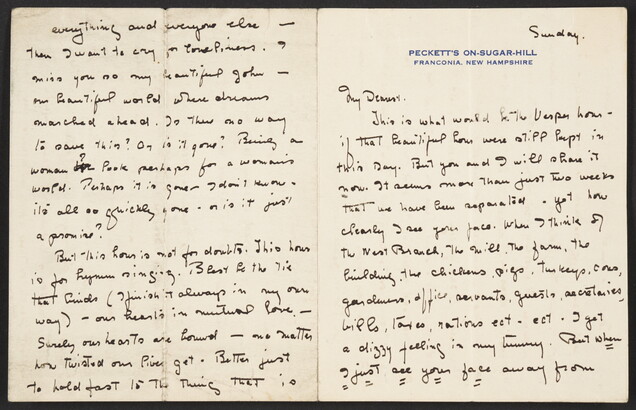 Sunday.
PECKETT'S ON-SUGAR-HILL
FRANCONIA, NEW HAMPSHIRE
My Dearest.
This is what would be the Vesper hour -
if that beautiful hour were still kept in
this day. But you and I will share it
now. It seems more than just two weeks
that we have been separated - yet how
clearly I see your face. When I think of
the West Branch, the mill, the farm, the
building, the chickens, pigs, turkeys, cows,
gardeners, office, servants, guests, secretaries,
bills, taxes, rations ect - ect - I get
a dizzy feeling in my tummy. But when
I just see your face away from
everything and everyone else -
then I want to cry for loneliness. I
miss you so my beautiful John -
our beautiful world where dreams
marched ahead. Is there no way
to save this? Or is it gone? Being a
woman I look perhaps for a woman's
world. Perhaps it is gone - I don't know -
it's all so quickly gone - or is it just
a promise?
But this hour is not for doubts. This hour
is for hymn singing. Blest be the tie
that binds (I finish it always in my own
way) - our hearts in mutual love, -
Surely our hearts are bound - no matter
how twisted our lives get - Better just
to hold fast to the thing that is